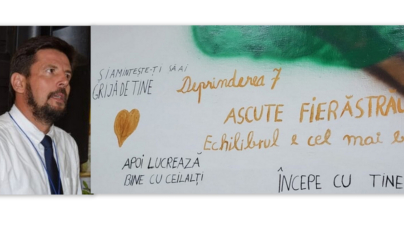 ȘI AMINTEȘTE-ȚI SĂ AI
GRIJĂ DE TINE
Deprinderea 7
ASCUTE FIERĂSTRĂ
Echilibrul e cel mai
APOI LUCREAZĂ
BINE CU CEILALȚI
ÎNCEPE CU TINE